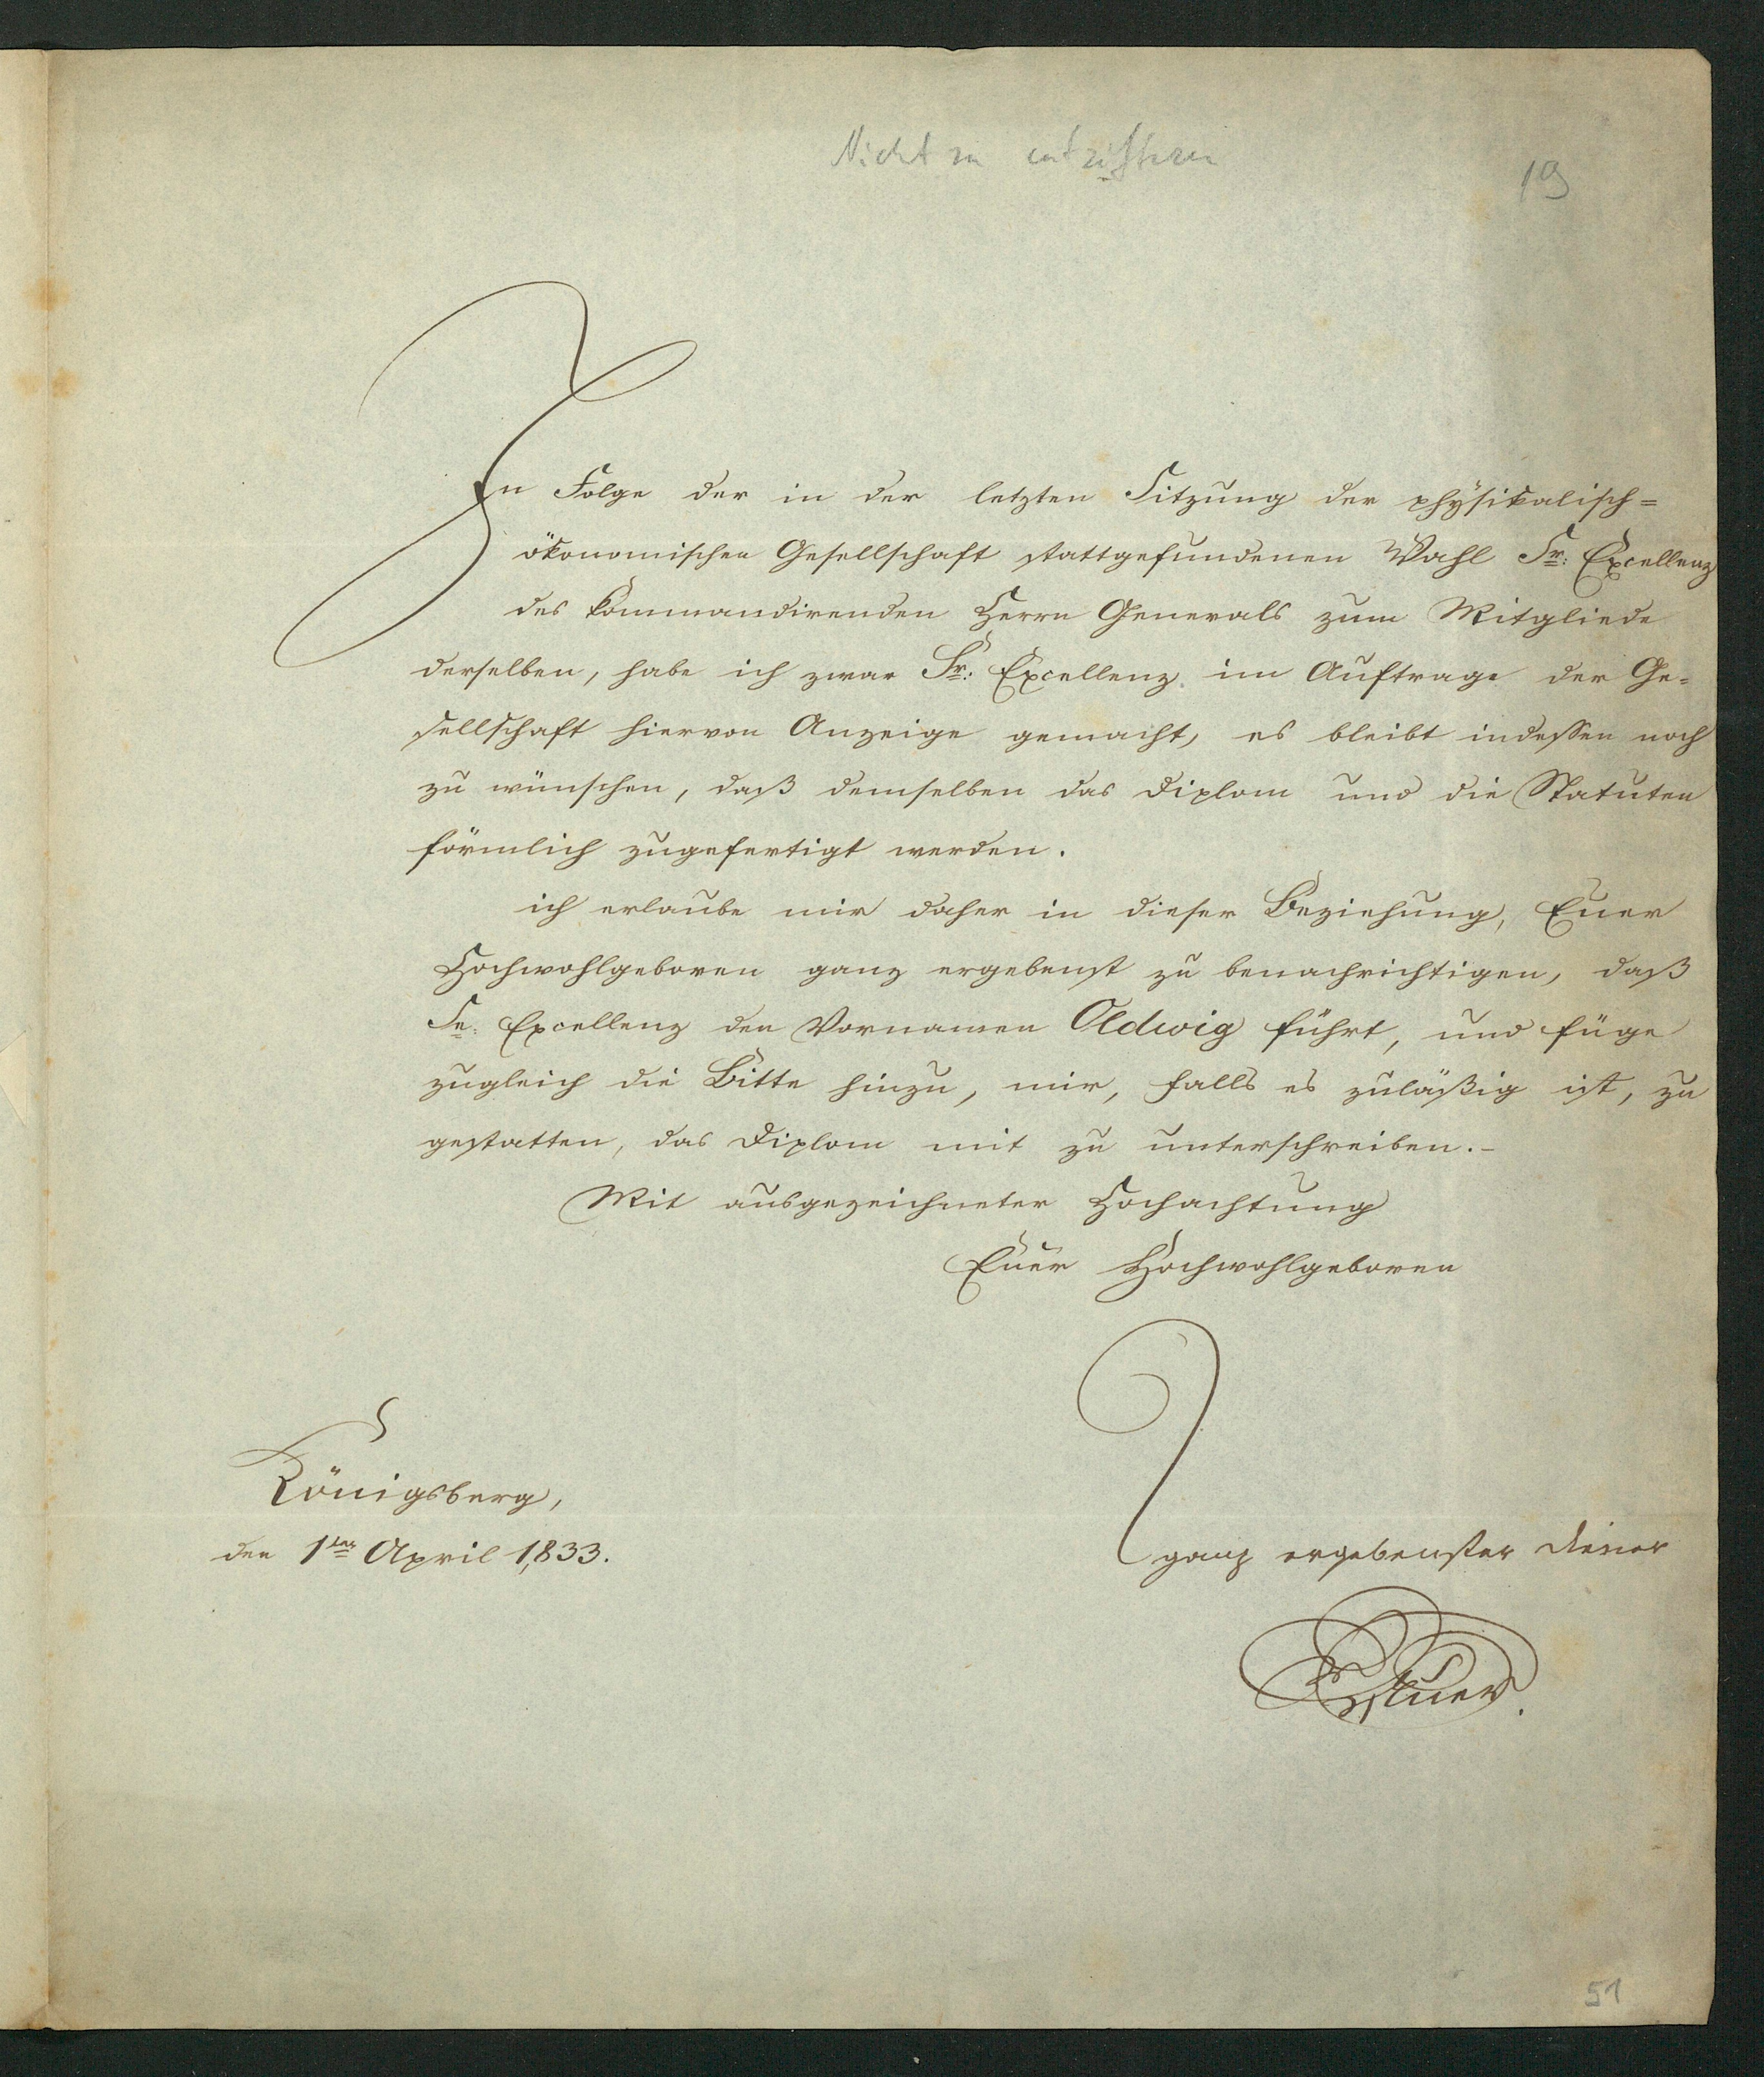 Nicht zu entziffern
19
In Folge der in der letzten Sitzung der physikalisch=
ökonomischen Gesellschaft stattgefundenen Wahl Sr: Excellenz
des kommandirenden Herrn Generals zum Mitgliede
derselben, habe ich zwar Sr: Excellenz im Auftrage der Ge-
sellschaft hiervon Anzeige gemacht, es bleibt indessen noch
zu wünschen, daß demselben das Diplom und die Statuten
förmlich zugefertigt werden.
ich erlaube mir daher in dieser Beziehung, Euer
Hochwohlgeboren ganz ergebenst zu benachrichtigen, daß
Se: Excellenz den Vornamen Oldwig führt, und füge
zugleich die Bitte hinzu, mir, falls es zuläßig ist, zu
gestatten, das Diplom mit zu unterschreiben.-
Mit ausgezeichneter Hochachtung
Euer Hochwohlgeboren
Königsberg,
den 1ten April 1833.
ganz ergebenster Diener
51